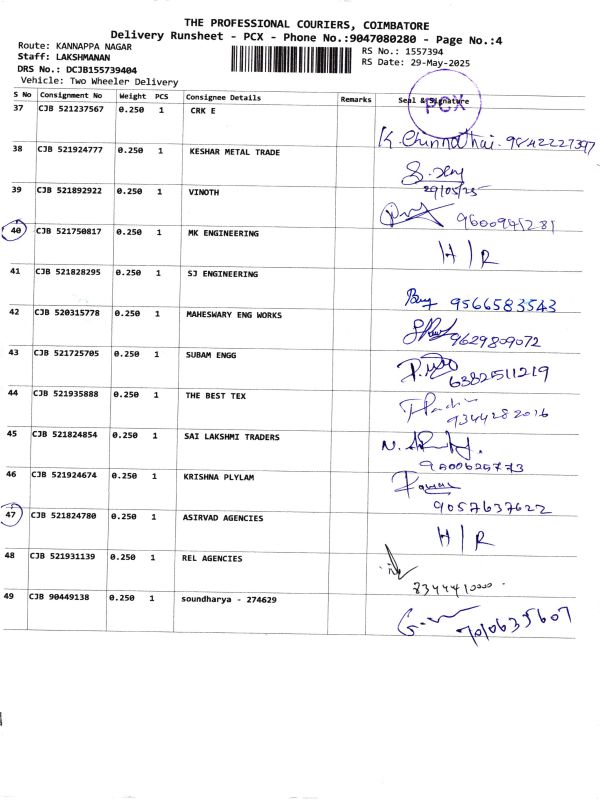 THE PROFESSIONAL COURIERS, COIMBATORE
Delivery Runsheet - PCX - Phone No.:9047080280 - Page No.:4
Route: KANNAPPA NAGAR
Staff: LAKSHMANAN
DRS No.: DCJB155739404
Vehicle: Two Wheeler Delivery
RS No.: 1557394
RS Date: 29-May-2025
S No Consignment No Weight PCS Consignee Details Remarks Seal & Signature
PCX
37 CJB 521237567 0.250 1 CRK E K. Chinnathai. 9842227397
38 CJB 521924777 0.250 1 KESHAR METAL TRADE
29/05/25
39 CJB 521892922 0.250 1 VINOTH 9600941281
40 CJB 521750817 0.250 1 MK ENGINEERING H|R
41 CJB 521828295 0.250 1 SJ ENGINEERING 9566583543
42 CJB 520315778 0.250 1 MAHESWARY ENG WORKS 9629809072
43 CJB 521725705 0.250 1 SUBAM ENGG 6382511219
44 CJB 521935888 0.250 1 THE BEST TEX 9344282016
45 CJB 521824854 0.250 1 SAI LAKSHMI TRADERS
46 CJB 521924674 0.250 1 KRISHNA PLYLAM 9057637622
47 CJB 521824780 0.250 1 ASIRVAD AGENCIES H|R
48 CJB 521931139 0.250 1 REL AGENCIES
49 CJB 90449138 0.250 1 soundharya - 274629 7010635607